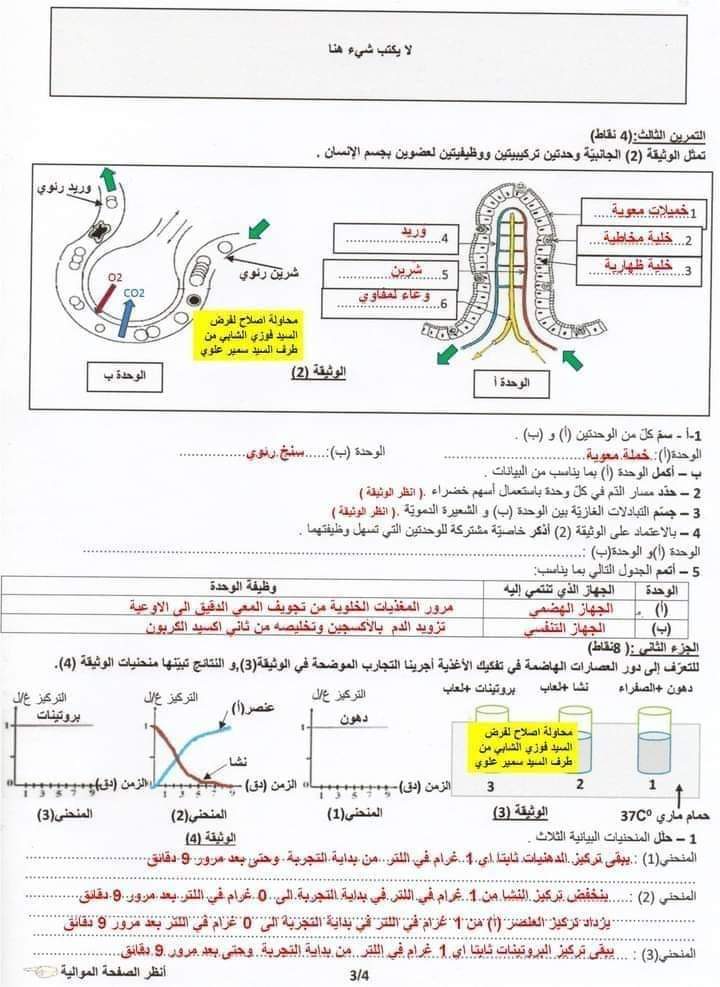 لا يكتب شيء هنا
التمرين الثالث:(4 نقاط)
تمثل الوثيقة (2) الجانبيّة وحدتين تركيبيتين ووظيفيتين لعضوين بجسم الإنسان .
وريد رئوي
شرين رئوي
O2
CO2
محاولة اصلاح لفرض
السيد فوزي الشابي من
طرف السيد سمير علوي
الوحدة ب
الوثيقة (2)
1 خميلات معوية
2 خلية مخاطية
3 خلية ظهارية
4 وريد
5 شرين
6 وعاء لمفاوي
الوحدة أ
1-أ - سمّ كلّ من الوحدتين (أ) و (ب) .
الوحدة(أ): خملة معوية الوحدة (ب): سنخ رئوي
ب – أكمل الوحدة (أ) بما يناسب من البيانات .
2 – حدّد مسار الدّم في كلّ وحدة باستعمال أسهم خضراء .( انظر الوثيقة )
3 – جسّم التبادلات الغازيّة بين الوحدة (ب) و الشعيرة الدمويّة .( انظر الوثيقة )
4 – بالاعتماد على الوثيقة (2) أذكر خاصيّة مشتركة للوحدتين التي تسهل وظيفتهما .
الوحدة (أ)و الوحدة(ب) :
5 – أتمم الجدول التالي بما يناسب:
الوحدة الجهاز الذي تنتمي إليه وظيفة الوحدة
(أ) الجهاز الهضمي مرور المغذيات الخلوية من تجويف المعي الدقيق الى الاوعية
(ب) الجهاز التنفسي تزويد الدم بالأكسجين وتخليصه من ثاني اكسيد الكربون
الجزء الثاني :( 8نقاط)
للتعرّف إلى دور العصارات الهاضمة في تفكيك الأغذية أجرينا التجارب الموضحة في الوثيقة(3),و النتائج تبيّنها منحنيات الوثيقة (4).
دهون +الصفراء نشا +لعاب بروتينات +لعاب
محاولة اصلاح لفرض
السيد فوزي الشابي من
طرف السيد سمير علوي
1 2 3
حمام ماري 37C⁰
الوثيقة (3)
التركيز غ/ل
دهون
1
0
1 3 5 7 9
الزمن (دق)
المنحني(1)
التركيز غ/ل
عنصر(أ)
نشا
1
0
1 3 5 7 9
الزمن (دق)
المنحني(2)
التركيز غ/ل
بروتينات
1
0
1 3 5 7 9
الزمن (دق)
المنحني(3)
الوثيقة (4)
1 – حلل المنحنيات البيانية الثلاث .
المنحني(1) : يبقى تركيز الدهنيات ثابتا اي 1 غرام في اللتر من بداية التجربة وحتى بعد مرور 9 دقائق
المنحني (2) : ينخفض تركيز النشا من 1 غرام في اللتر في بداية التجربة الى 0 غرام في اللتر بعد مرور 9 دقائق
يزداد تركيز العنصر (أ) من 1 غرام في اللتر في بداية التجربة الى 0 غرام في اللتر بعد مرور 9 دقائق
المنحني(3) : يبقى تركيز البروتينات ثابتا اي 1 غرام في اللتر من بداية التجربة وحتى بعد مرور 9 دقائق
أنظر الصفحة الموالية
3/4